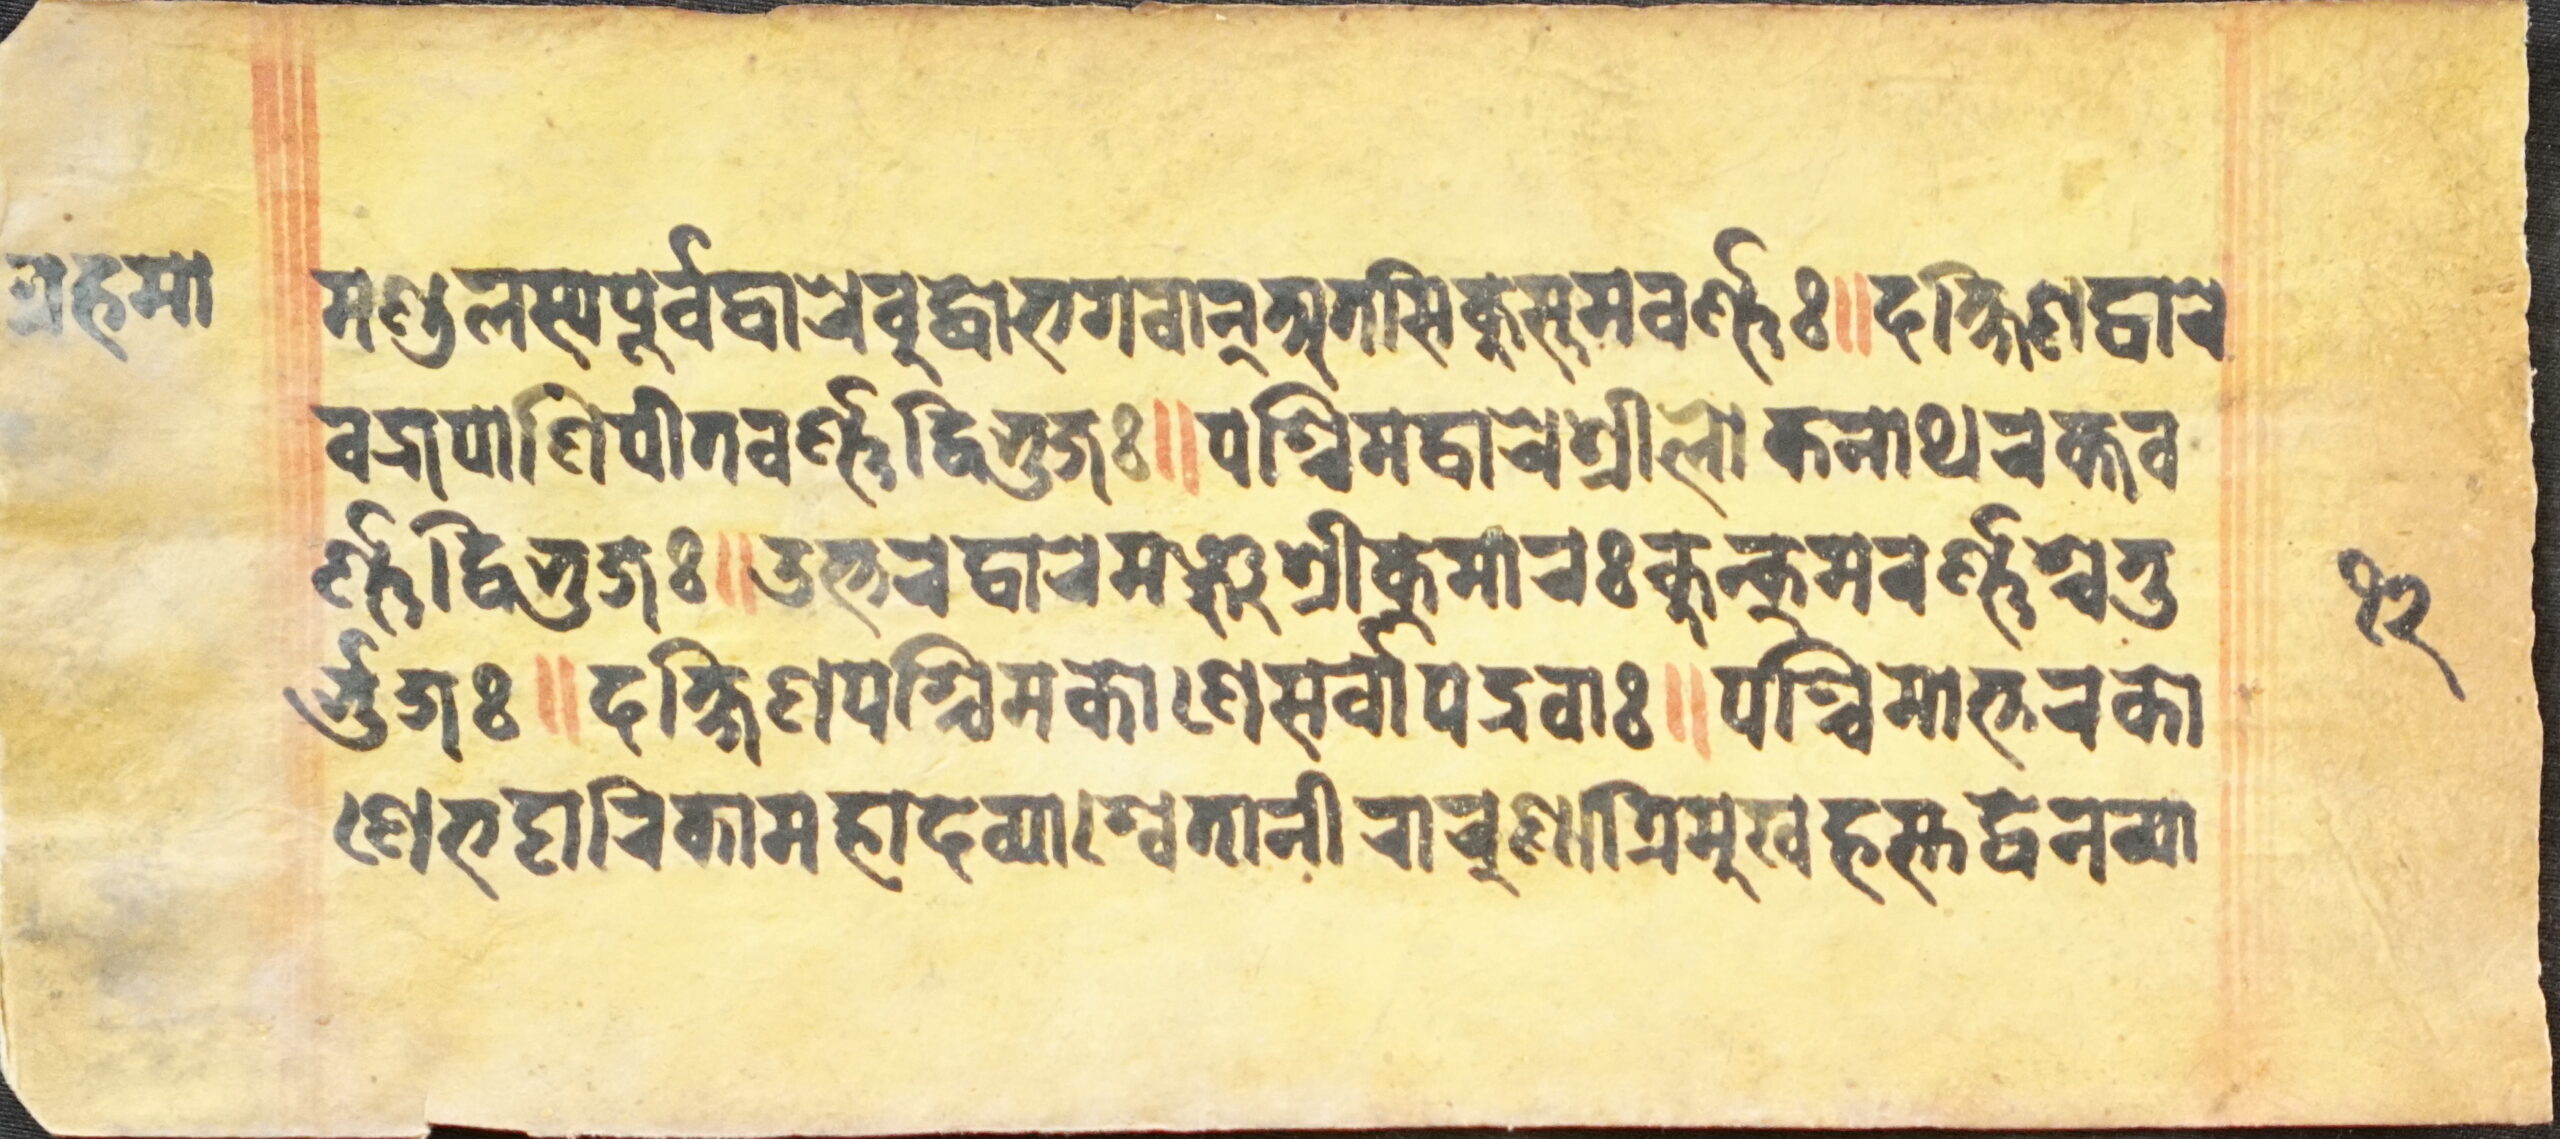 ग्रहमा
मण्डलस्यपूर्वद्वारेबुद्धोभगवान्अतसिकुसुमवर्ण्णः॥दक्षिणद्वारे
वज्रपाणिपीतवर्ण्णद्विभुजः॥पश्चिमद्वारेश्रीलोकनाथरक्तव
र्ण्णद्विभुजः॥उत्तरद्वारेमञ्जुश्रीकुमारःकुन्कुमवर्ण्णश्चतु
र्भुजः॥दक्षिणपश्चिमकोणेसर्वोपद्रवाः॥पश्चिमोत्तरको
णेभट्टारिकामहादेव्याश्वेता त्रिमुखहस्तद्वेनव्या
१२